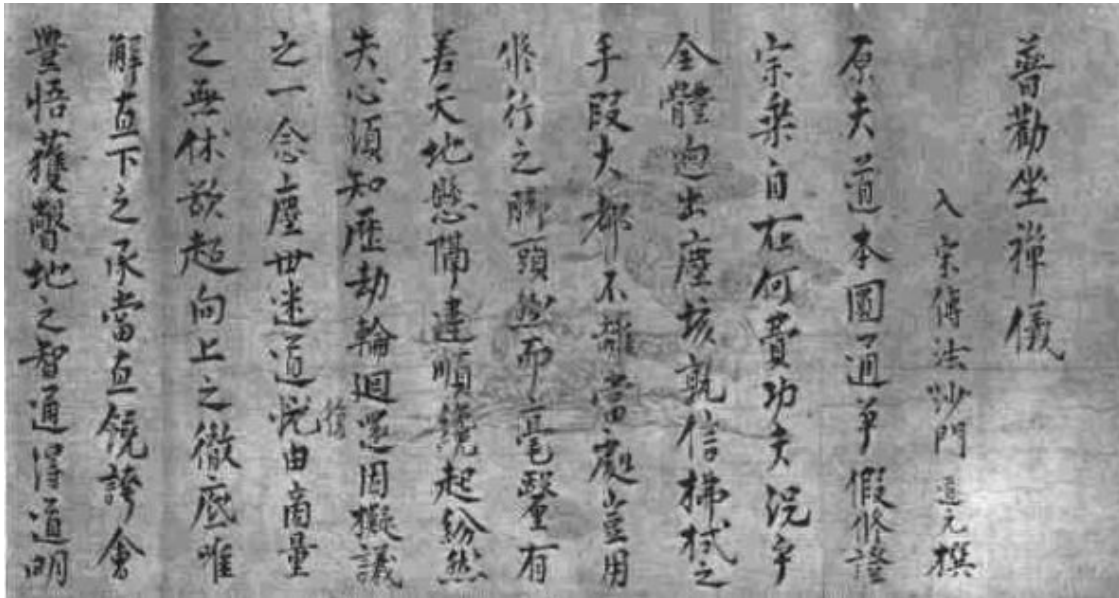 普勸坐禪儀
入宋傳法沙門 道元撰
原夫道本圓通爭假修證
宗乘自在何費功夫況乎
全體逈出塵埃孰信拂拭之
手段大都不離當處豈用
修行之脚頭然而毫釐有
差天地懸隔違順纔起紛然
失心須知歷劫輪迴還因擬議
之一念塵世迷道復由商量
之無休欲超向上之徹底唯
解直下之承當直饒誇會
豐悟獲瞥地之智通得道明